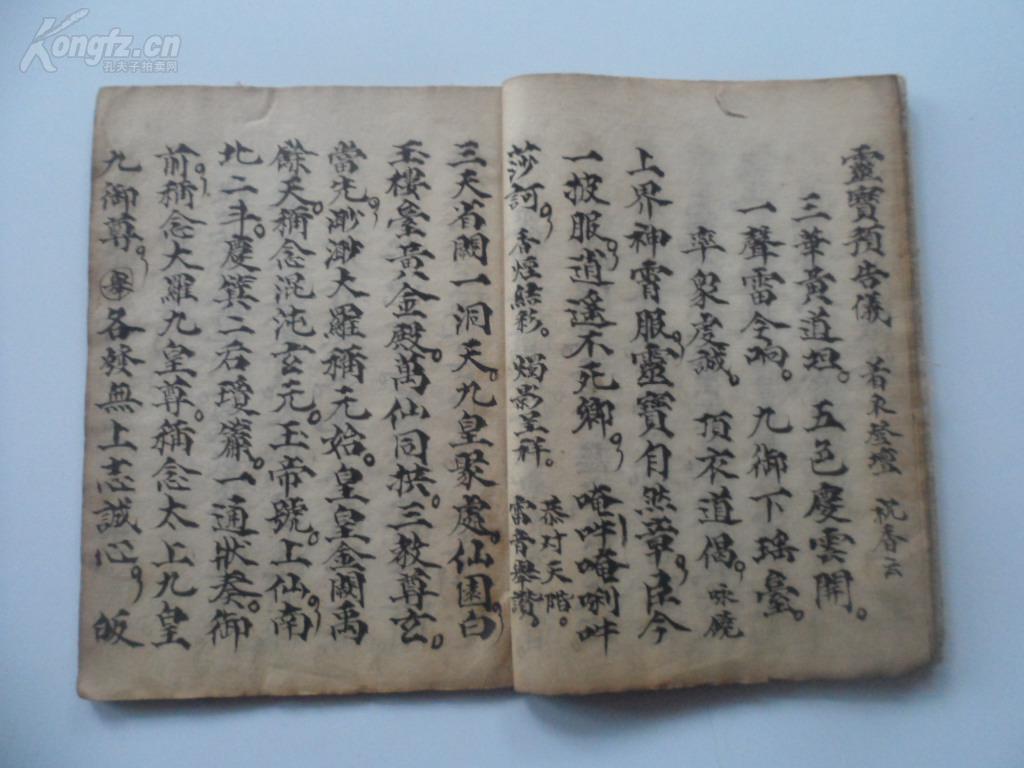 靈寶預告儀 着衣登壇 祝香云
三華黃道坦。五色慶雲開。
一聲雷令响。九御下瑤臺。
率眾虔誠。頂衣道偈。咏繞
上界神霄服。靈寶自然章。臣今
一披服。逍遙不死鄉。唵吽唵唎吽
莎訶。香煙結彩。燭影呈祥。恭对天階。雷音舉讚。
三天省闕一洞天。九皇聚處。仙園白
玉樓臺黃金殿。萬仙同拱。三教尊玄。
當先。渺渺大羅稱元始。皇皇金闕禹
餘天。稱念混沌玄元。玉帝號。上仙。南
北二斗。慶箕二石瓊簫。一通狀奏。御
前。稱念大羅九皇尊。稱念太上九皇
九御尊。舉 各發無上志誠心。皈
Kongfz.cn
孔夫子拍卖网